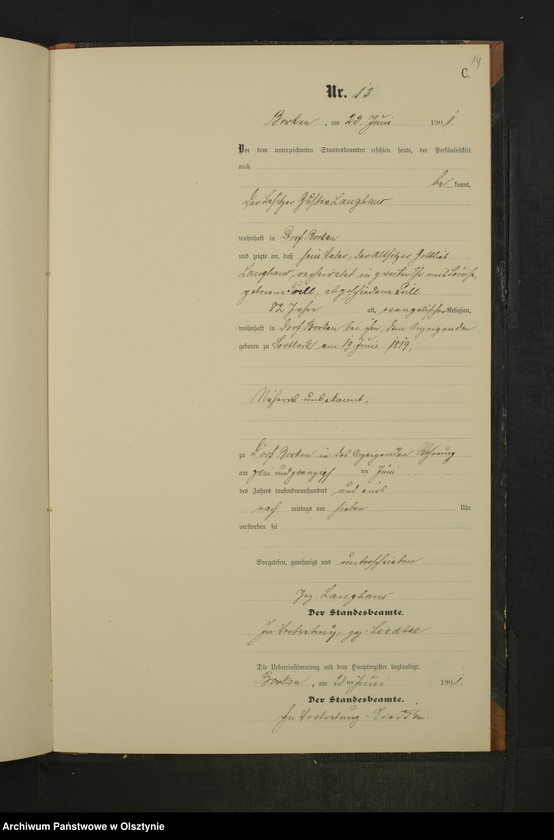 14
C.
Nr. 13
Borken, am 23. Juni 1901.
Vor dem unterzeichneten Standesbeamten erschien heute, der Persönlichkeit
nach
be kannt,
der Besitzer Gustav Langhans
wohnhaft in Dorf Borken
und zeigte an, daß sein Vater, der Altsitzer Gottlieb
Langhans, verheiratet in zweiter Ehe mit Louise
geborene Prill, abgeschiedene Prill
82 Jahre alt, evangelischer Religion,
wohnhaft in Dorf Borken bei ihm, dem Anzeigenden
geboren zu am 19. Juni 1819,
Näheres unbekannt,
zu Dorf Borken in des Anzeigenden Wohnung
am zwei und zwanzigsten Juni
des Jahres tausendneunhundert und eins
nach mittags um sieben Uhr
verstorben sei
Vorgelesen, genehmigt und unterschrieben
gez. Langhans
Der Standesbeamte.
In Vertretung, gez.
Die Uebereinstimmung mit dem Hauptregister beglaubigt.
Borken, am 23ten Juni 1901.
Der Standesbeamte.
In Vertretung
Archiwum Państwowe w Olsztynie